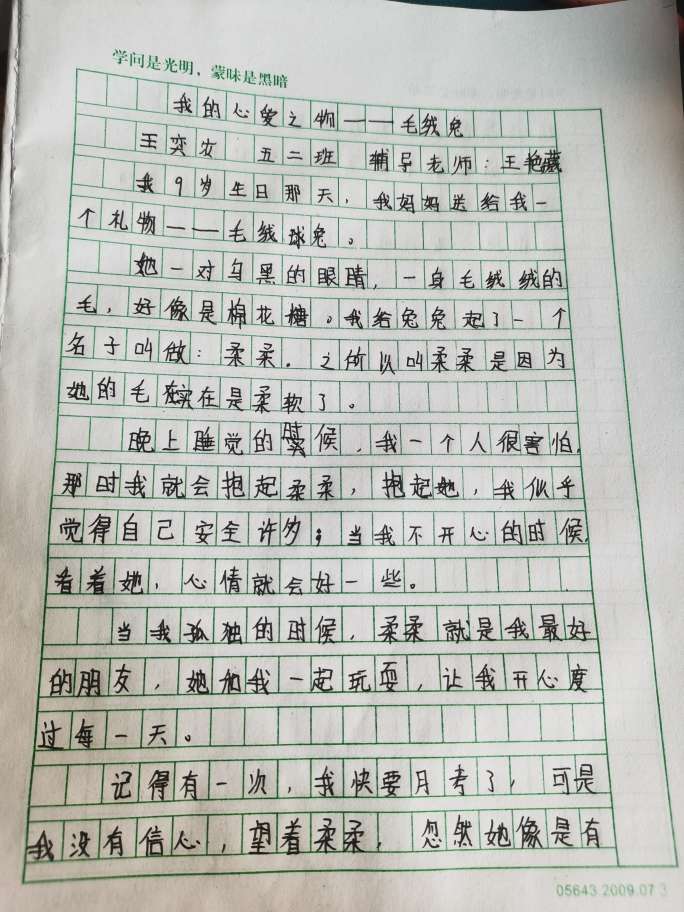 学问是光明，蒙昧是黑暗
我的心爱之物——毛绒兔
王奕妆 五二班 辅导老师：王艳藏
我9岁生日那天，我妈妈送给我一
个礼物——毛绒球兔。
她一对乌黑的眼睛，一身毛绒绒的
毛，好像是棉花糖。我给兔兔起了一个
名子叫做：柔柔。之所以叫柔柔是因为
她的毛实在是柔软了。
晚上睡觉的时候，我一个人很害怕，
那时我就会抱起柔柔，抱起她，我似乎
觉得自己安全许多；当我不开心的时候，
看着她，心情就会好一些。
当我孤独的时候，柔柔就是我最好
的朋友，她和我一起玩耍，让我开心度
过每一天。
记得有一次，我快要月考了，可是
我没有信心，望着柔柔，忽然她像是有
05643.2009.07